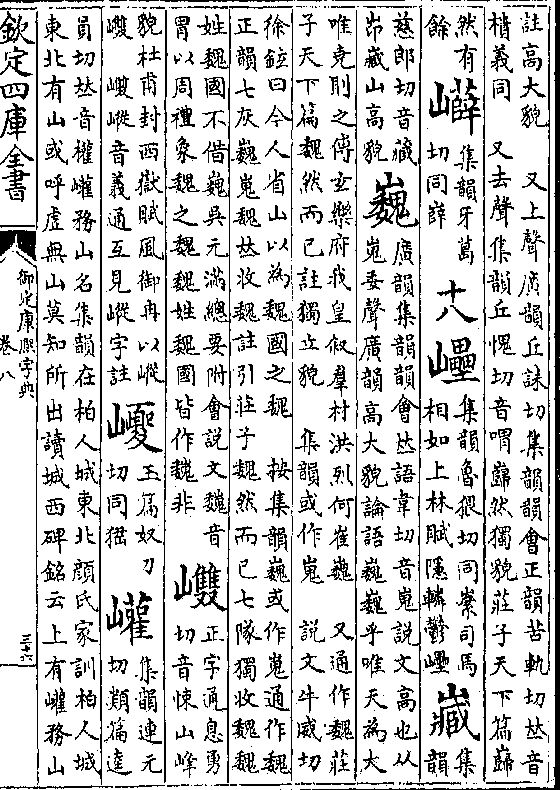 註高大貌　又上聲廣韻丘誄切集韻韻會正韻苦軌切𠀤音
樻義同　又去聲集韻丘愧切音喟巋然獨貌莊子天下篇巋
然有
餘
集韻牙葛
切同嶭
十八
㠥
集韻魯猥切同 司馬
相如上林賦隱轔鬱㠥
集
韻
慈郎切音藏
昂藏山高貌
巍
廣韻集韻韻會𠀤語韋切音嵬說文高也从
嵬委聲廣韻高大貌論語巍巍乎唯天為大
唯堯則之傅玄樂府我皇叙羣材洪烈何崔巍　又通作魏莊
子天下篇魏然而已註獨立貌　集韻或作嵬　說文牛威切
徐鉉曰今人省山以為魏國之魏　按集韻巍或作嵬通作魏
正韻七灰巍嵬魏𠀤收魏註引莊子魏然而已七隊獨收魏魏
姓魏國不借巍吳元滿總要附會說文巍音
胃以周禮象魏之魏魏姓魏國皆作巍非
正字通息勇
切音悚山峰
貌杜甫封西嶽賦風御冉以嵷
嵷音義通互見嵷字註
巎
玉篇奴刀
切同峱
巏
集韻連元
切類篇逵
員切𠀤音權巏務山名集韻在柏人城東北顏氏家訓柏人城
東北有山或呼虛無山莫知所出讀城西碑銘云上有巏務山
欽定四庫全書
御定康熙字典
卷八
三十六